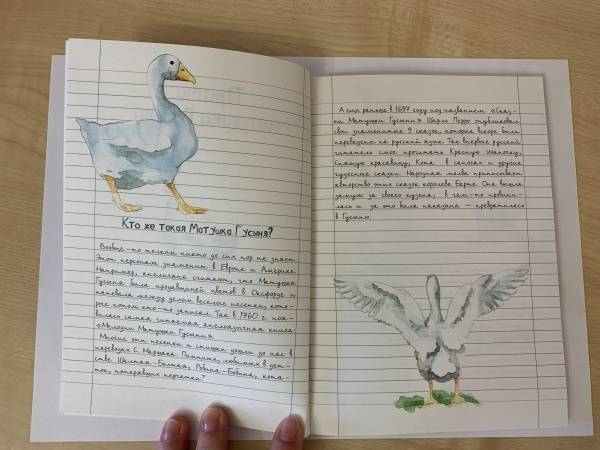 Кто же такая Матушка Гусыня?
Вообще-то толком никто до сих пор не знает.
Этот персонаж знаменит в Европе и Америке.
Например, англичане считают, что Матушка
Гусыня была продавщицей цветов в Оксфорде и
напевала между делом веселые песенки, кото-
рые потом кто-то записал. Так в 1760 г. поя-
вилась самая читаемая англоязычная книга
«Мелодии Матушки Гусыни».
Многие эти песенки и стишки дошли до нас в
переводах С. Маршака. Помните, любимых в дет-
стве Шалтая-Болтая, Робина-Бобина, котя-
ток, потерявших перчатки?
А еще раньше в 1697 году под названием «Сказ-
ки Матушки Гусыни» Шарль Перро опубликовал
свои знаменитые 9 сказок, которые вскоре были
переведены на русский язык. Так впервые русский
читатель смог прочитать Красную Шапочку,
Спящую красавицу, Кота в сапогах и другие
чудесные сказки. Народная молва приписывает
авторство этих сказок королеве Берте. Она вышла
замуж за своего кузена, в чем-то провини-
лась и за это была наказана – превратилась
в Гусыню.